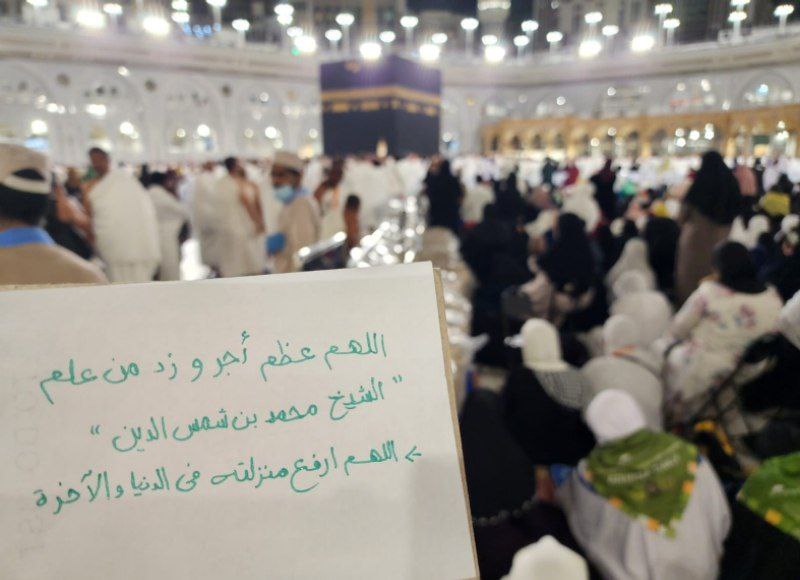 اللهم عظم أجر و زد من علم
" الشيخ محمد بن شمس الدين "
> اللهم ارفع منزلته في الدنيا والآخرة